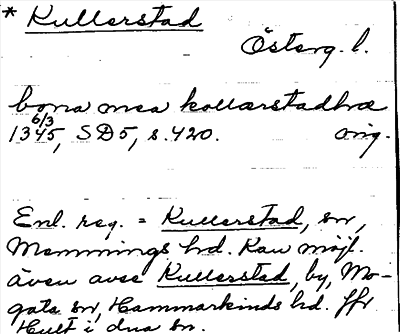 * Kullerstad
Österg. l.
bona mea kollærstadhræ
6/3
1345, SD5, s. 420. orig.
Enl. reg. = Kullerstad, sn,
Memmings hd. Kan möjl.
även avse Kullerstad, by, Mo-
gata sn, Hammarkinds hd. Jfr
Hult i dna sn.